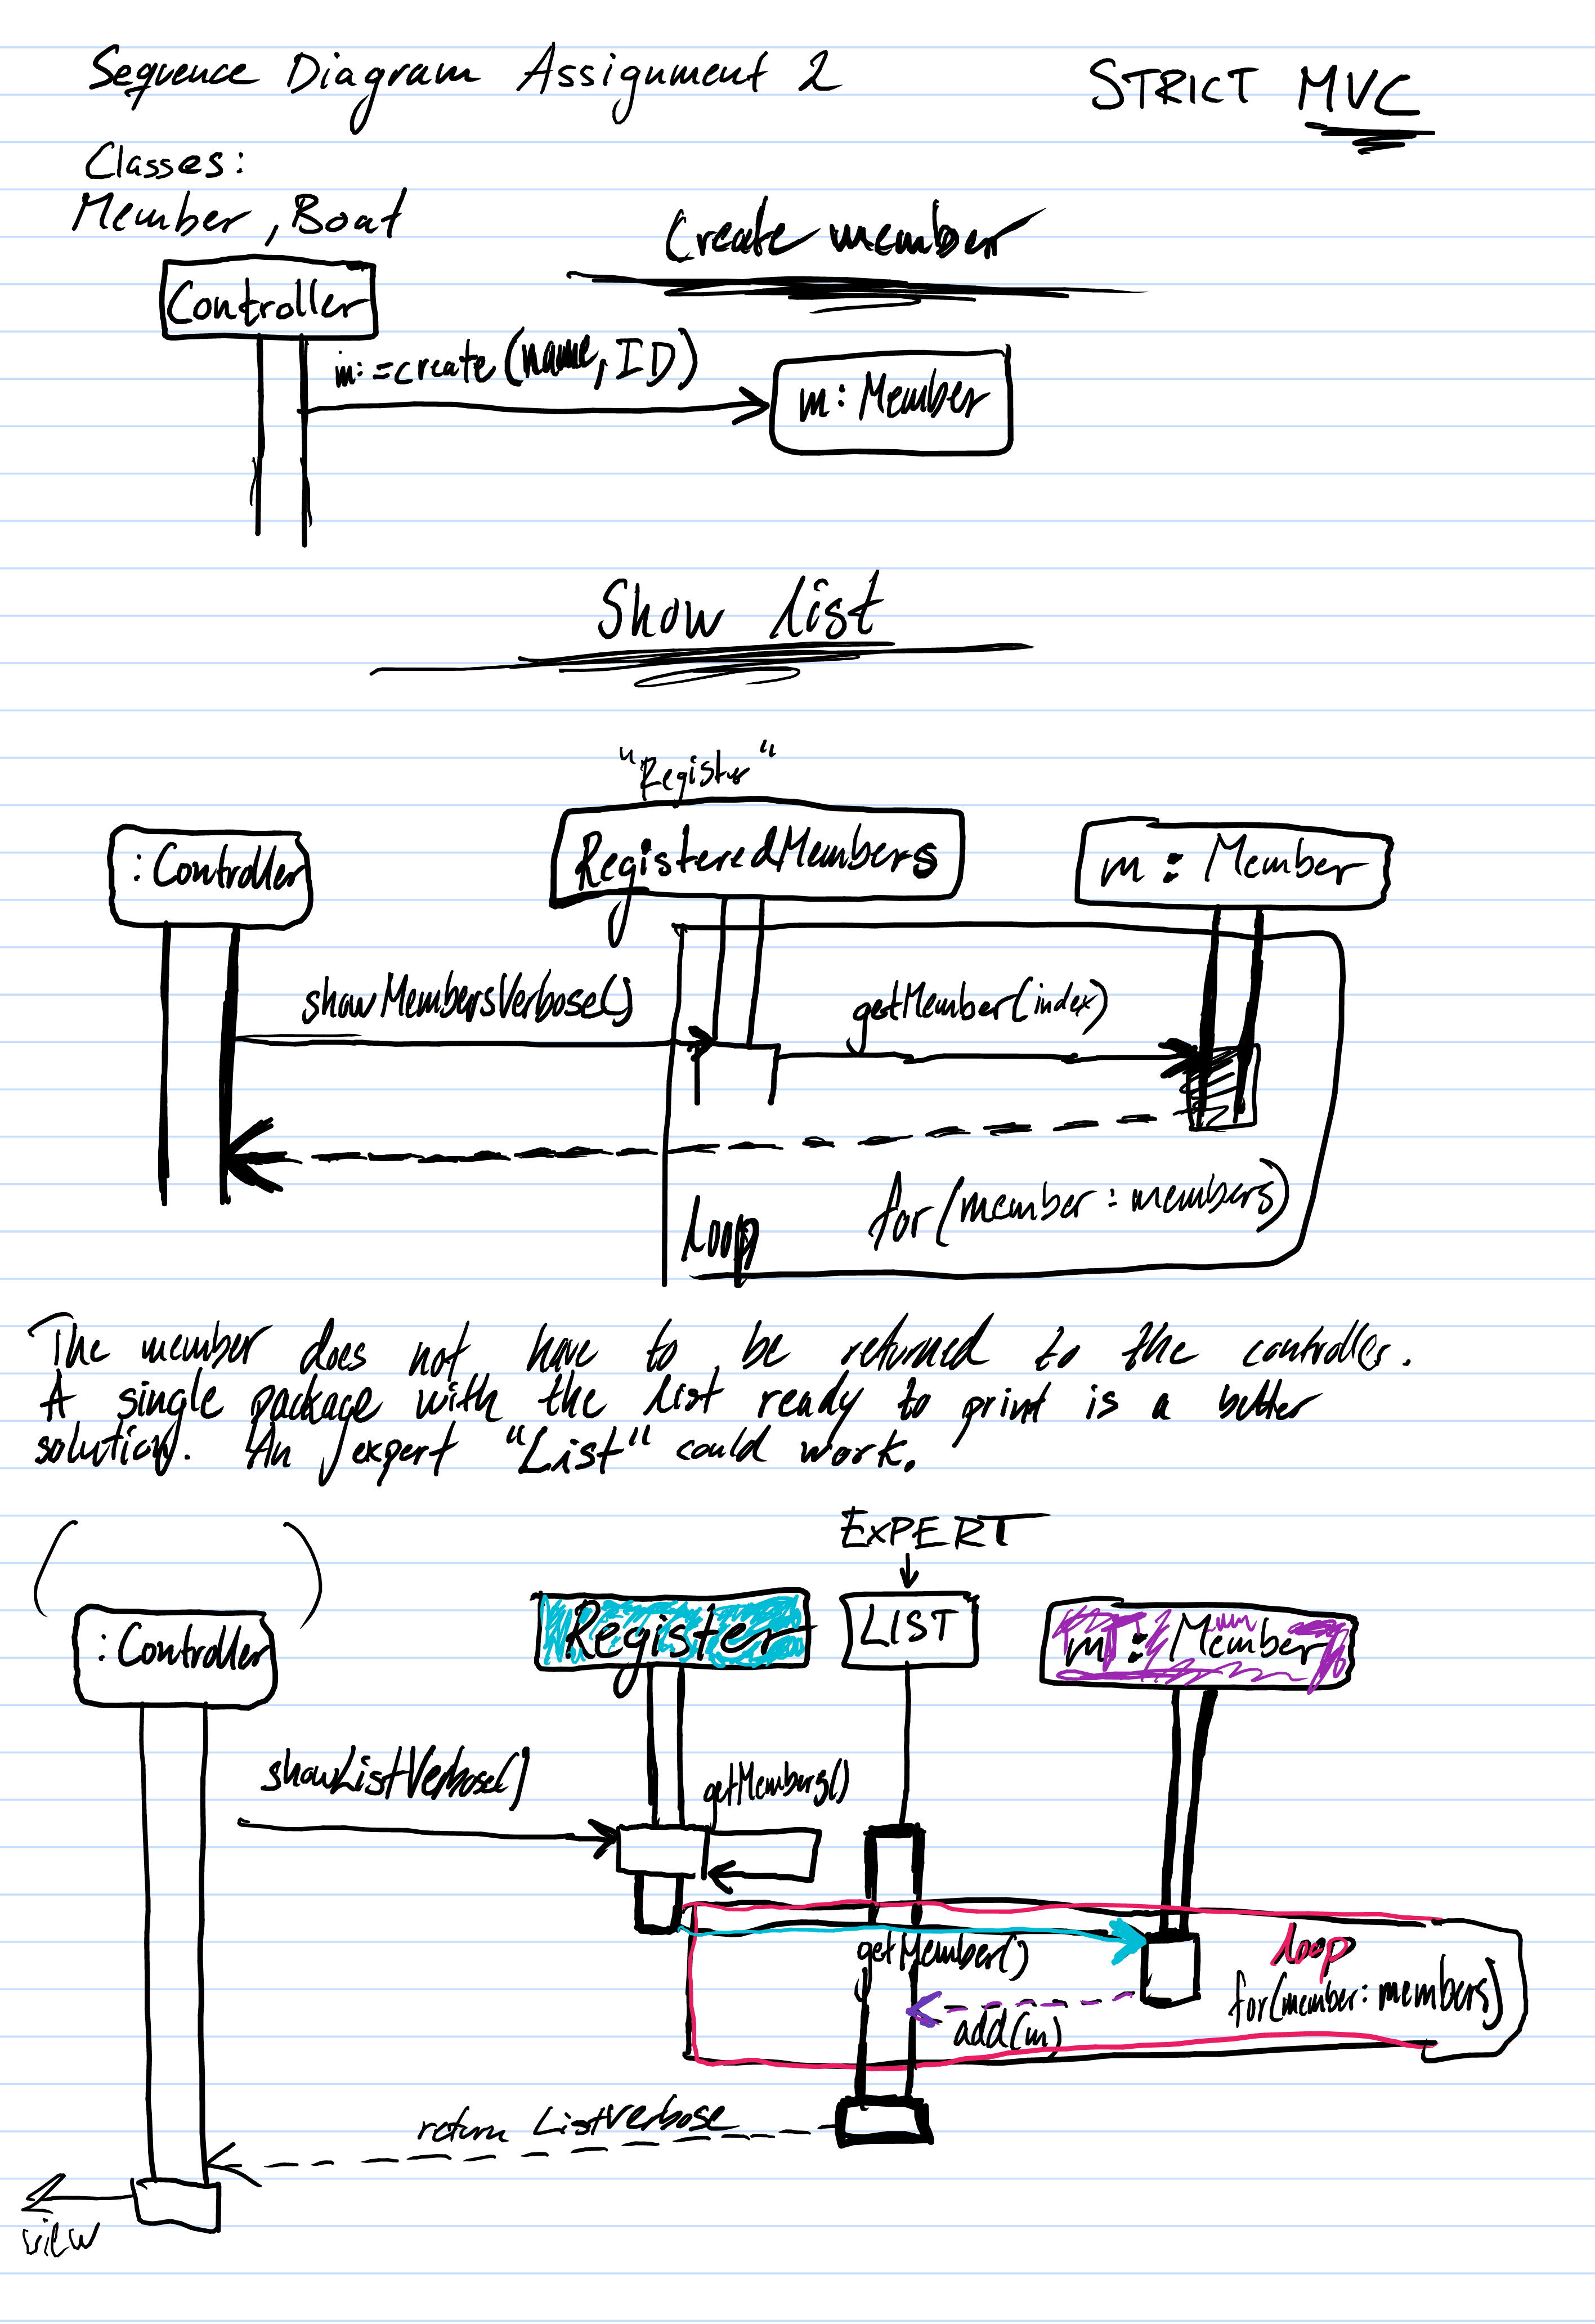 Sequence Diagram Assignment 2
STRICT MVC
Classes:
Member, Boat
Create member
Controller
m:=create(name, ID)
m: Member
Show list
"Register"
:Controller
RegisteredMembers
m : Member
showMembersVerbose()
getMember(index)
loop
for(member : members)
The member does not have to be returned to the controller.
A single package with the list ready to print is a better
solution. An expert "List" could work.
EXPERT
:Controller
Register
LIST
m : Member
showListVerbose()
getMembers()
loop
getMember()
for(member: members)
add(m)
return ListVerbose
view